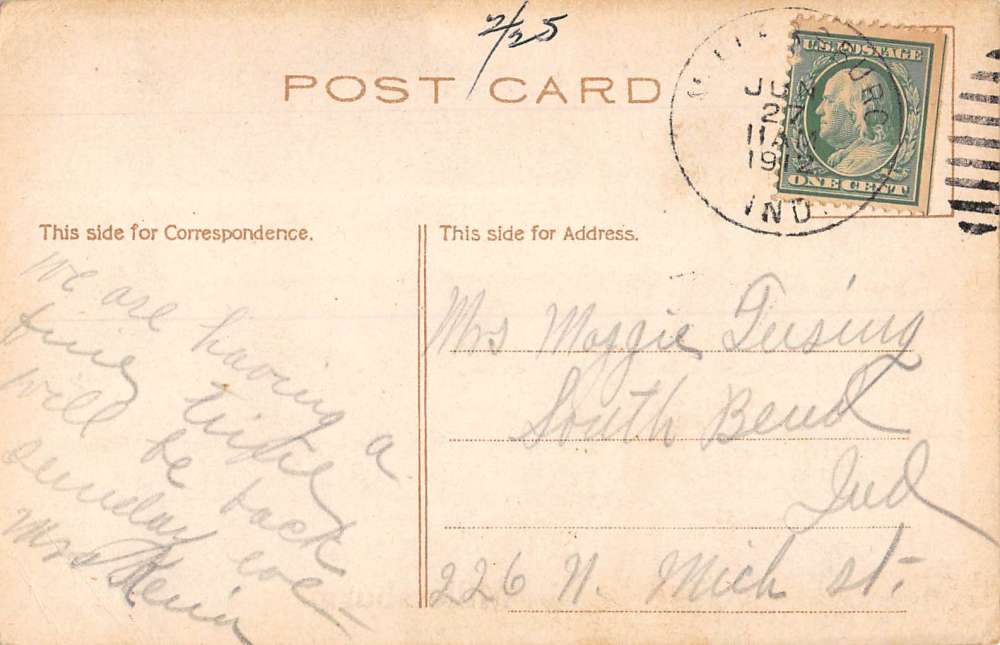 2/25
POST CARD
U.S. POSTAGE
ONE CENT
JUN
27
11 AM
1912
IND
This side for Correspondence.
We are having a
fine time
will be back
sunday eve-
Mrs
This side for Address.
Mrs Maggie
South Bend
Ind
226 N. Mich st.